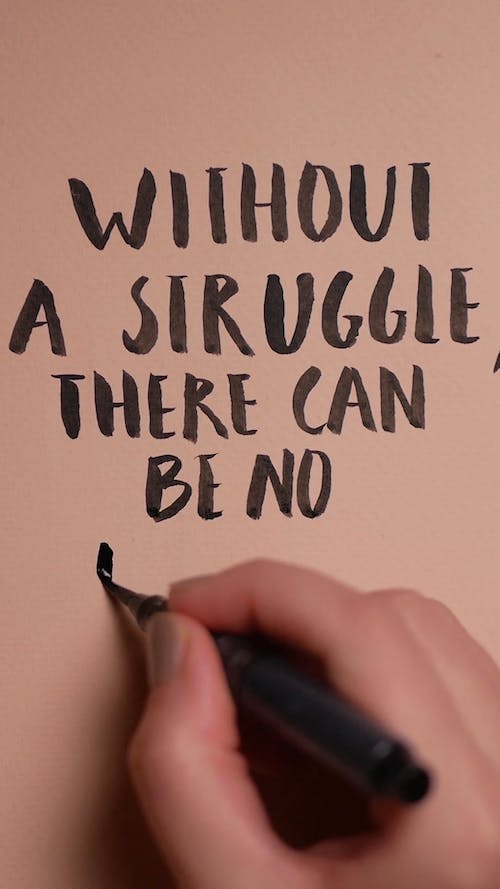 WITHOUT
A STRUGGLE,
THERE CAN
BE NO